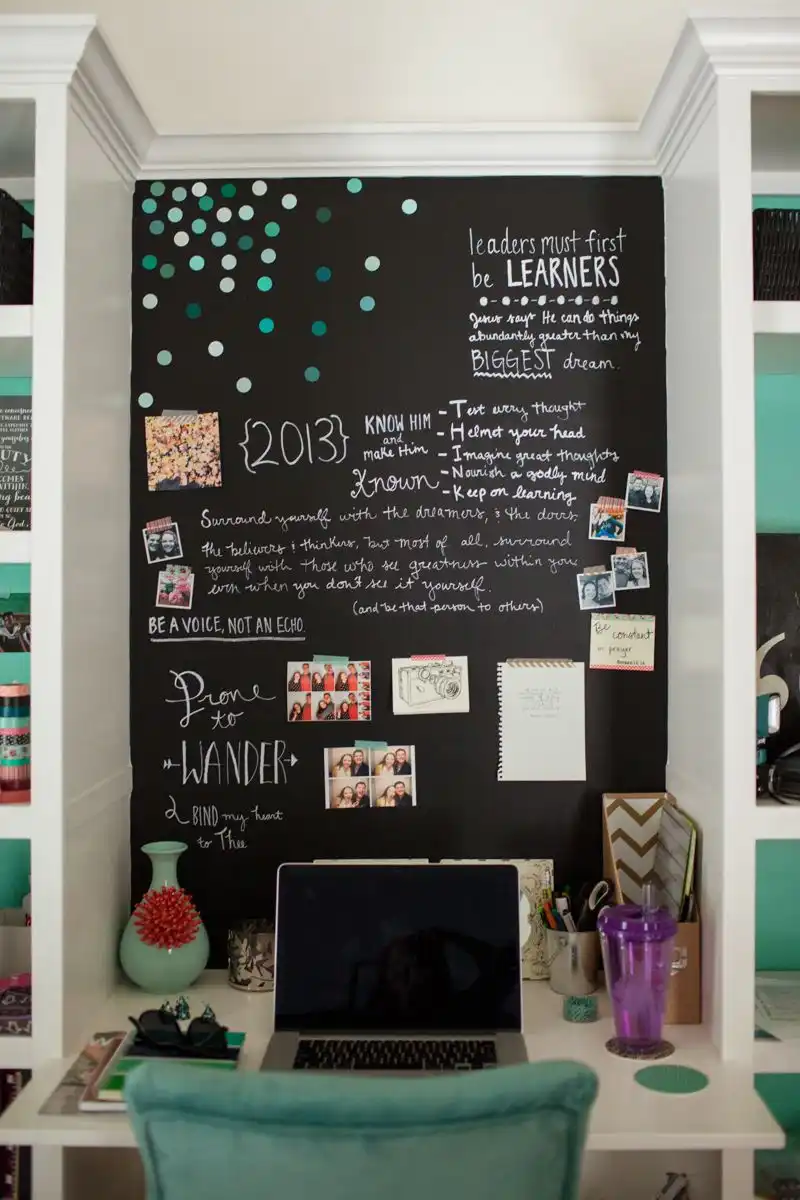 leaders must first
be LEARNERS
Jesus says He can do things
abundantly greater than my
BIGGEST dream.
{2013}
KNOW HIM
and
make Him
Known
- Test every thought
- Helmet your head
- Imagine great thoughts
- Nourish a godly mind
- Keep on learning
Surround yourself with the dreamers, & the doers,
the believers & thinkers, but most of all, surround
yourself with those who see greatness within you
even when you don't see it yourself.
(and be that person to others)
BE A VOICE, NOT AN ECHO.
Be constant
in prayer
Prone
to
WANDER
BIND my heart
to Thee
COMES
WITHIN.